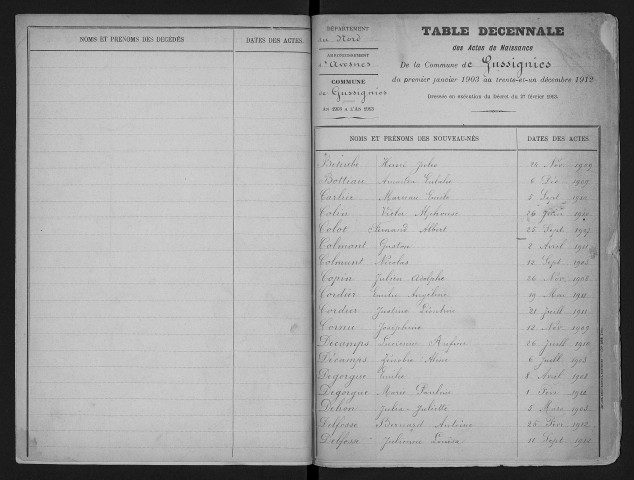 NOMS ET PRENOMS DES DECÉDÉS
DATES DES ACTES.
DÉPARTEMENT
du Nord
ARRONDISSEMENT
d'Avesnes
COMMUNE
de Gussignies
AN 1903 à L'AN 1912
TABLE DECENNALE
des Actes de Naissance
De la Commune de Gussignies
du premier janvier 1903 au trente-et-un décembre 1912
Dressée en exécution du Décret du 27 février 1903.
NOMS ET PRENOMS DES NOUVEAU-NÉS.
DATES DES ACTES.
Henri Jules 28 Nov. 1909
Bottiau Amandée Eulalie 6 Déc. 1909
Carlier Marceau 8 Sept. 1910
Colin Victor Alphonse 26
Colot Fernand Albert 25 Sept. 1907
Colmant Gustave 2 Avril
Colmant Nicolas 12 Sept.
Copin Julien Adolphe 26 Nov.
Cordier Emilie Angeline 19 Mai
Cordier Gustave 21 Juill.
Cornu Joséphine 12 Nov. 1909
Décamps Lucienne 26 Juill. 1910
Décamps Zénobie Aline 6 Juill.
Degorgue Emilie 8 Avril
Degorgue Marie Pauline 1 Fév. 1912
Dehon Julia Juliette 5 Mars
Delfosse Bernard Antoine 25 Fév. 1912
Delfosse Julienne Louisa 11 Sept.